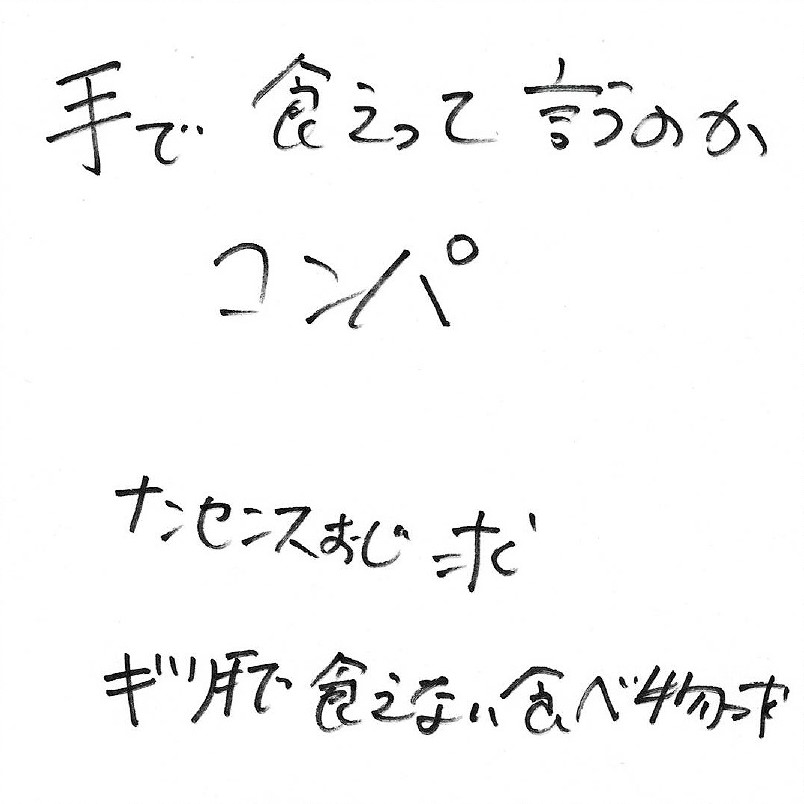 手で食えって言うのか
コンパ
ナンセンスおじ求
ギリ手で食えない食べ物求